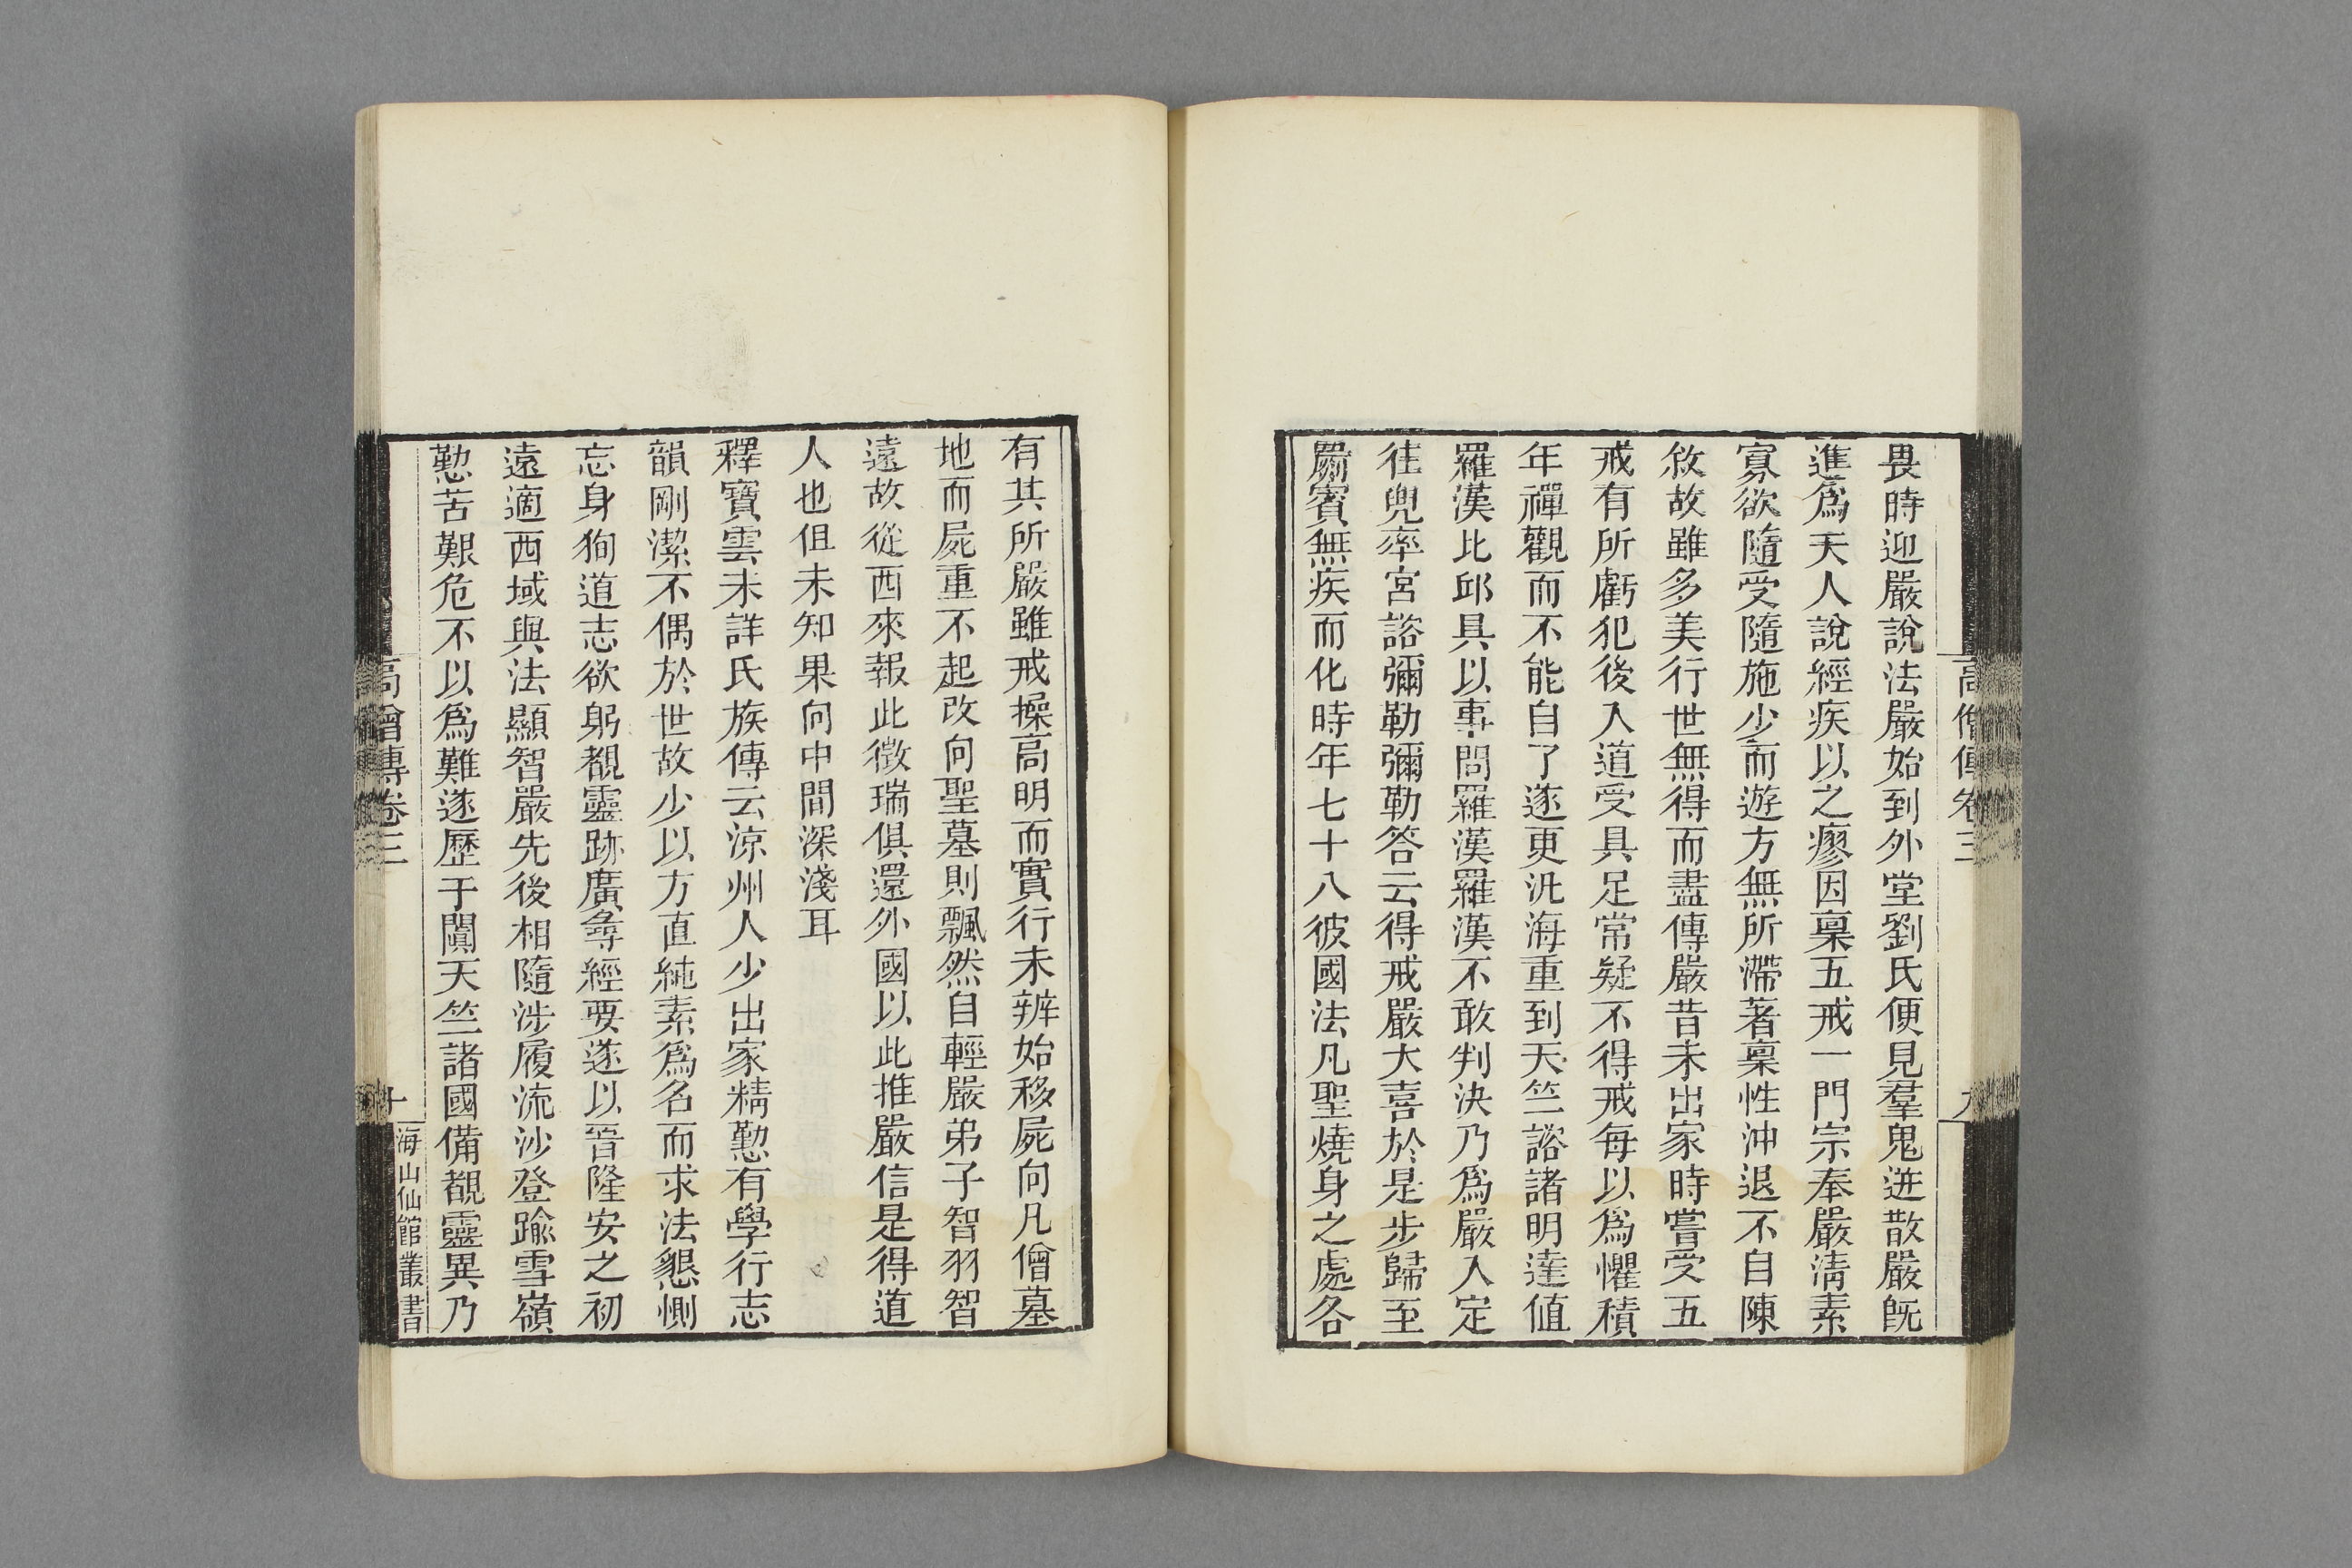 高僧傳卷三
九
畏時迎嚴說法嚴始到外堂劉氏便見羣鬼迸散嚴旣
進爲夫人說經疾以之瘳因稟五戒一門宗奉嚴淸素
寡欲隨受隨施少而遊方無所滯著稟性沖退不自陳
敘故雖多美行世無得而盡傳嚴昔未出家時嘗受五
戒有所虧犯後入道受具足常疑不得戒每以爲懼積
年禪觀而不能自了遂更汎海重到天竺諮諸明達値
羅漢比邱具以事問羅漢羅漢不敢判決乃爲嚴入定
往兜率宮諮彌勒彌勒答云得戒嚴大喜於是步歸至
罽賓無疾而化時年七十八彼國法凡聖燒身之處各
有其所嚴雖戒操高明而實行未辨始移屍向凡僧墓
地而屍重不起改向聖墓則飄然自輕嚴弟子智羽智
遠故從西來報此徵瑞俱還外國以此推嚴信是得道
人也但未知果向中間深淺耳
釋寶雲未詳氏族傳云涼州人少出家精懃有學行志
韻剛潔不偶於世故少以方直純素爲名而求法懇惻
忘身狥道志欲躬覩靈跡廣尋經要遂以晉隆安之初
遠適西域與法顯智嚴先後相隨涉履流沙登踰雪嶺
懃苦艱危不以爲難遂歷于闐天竺諸國備覩靈異乃
高僧傳卷三
十
海山仙館叢書